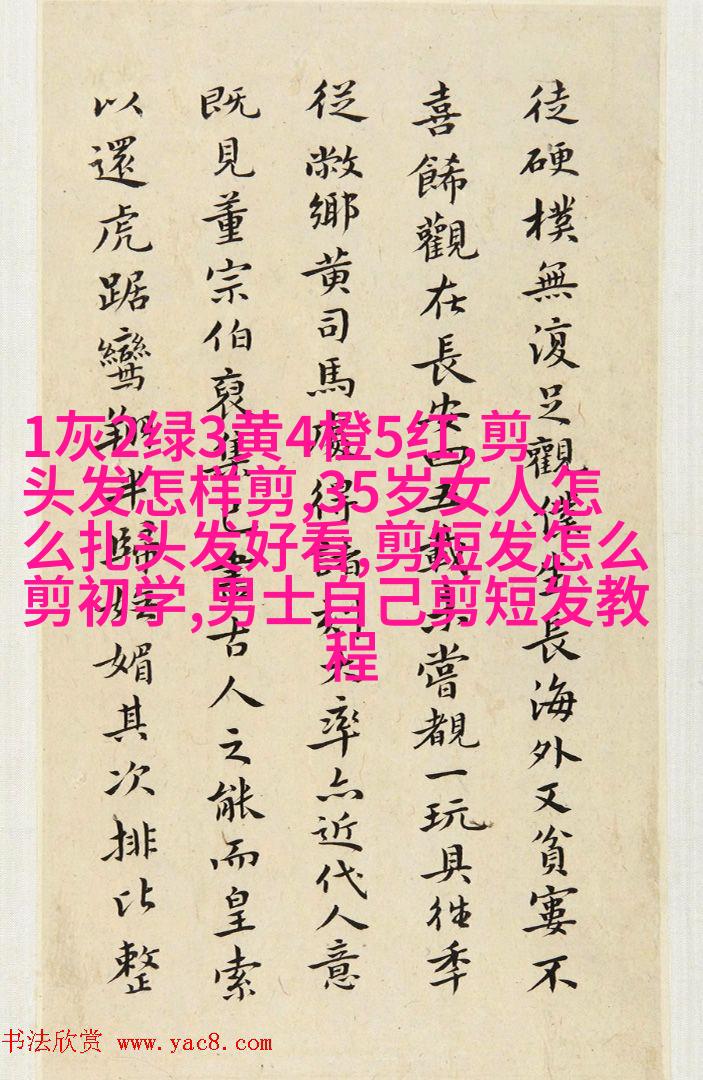 徒硬樸無復足觀僕生長海外又貧寠不
喜餙觀在長安四五載嘗覩一玩具往季
從敝鄉黄司馬處得諸刻率亦近代人意
既見董宗伯裒集已古人之能而皇索
以還虎踞鸞翔半歸媚其次排比整
1灰2绿3黄4橙5红,剪
头发怎样剪,35岁女人怎
么扎头发好看,剪短发怎么
剪初学,男士自己剪短发教
程
书法欣赏 www.yac8.com